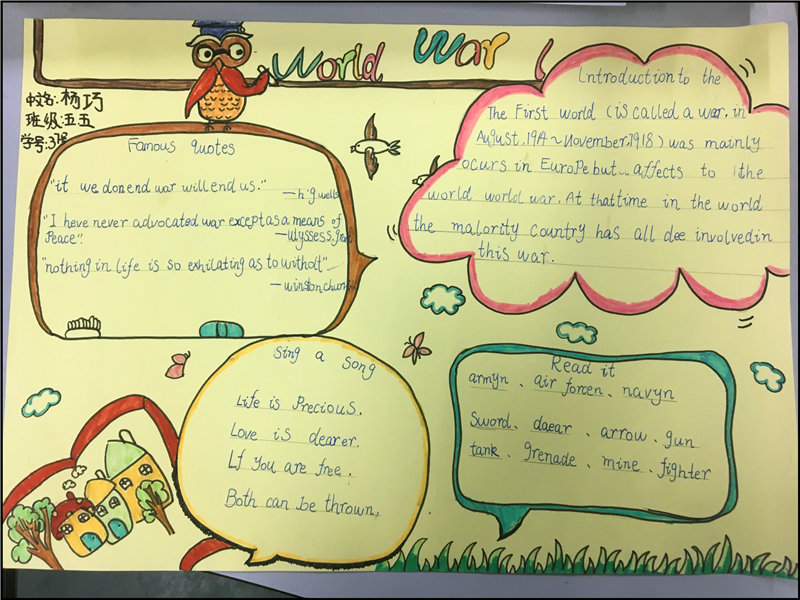 World War
中文名:杨巧
班级:五五
学号:38
Famous quotes
"it we donend war will end us."
—h·g wells
"I heve never advocated war except as a means of
Peace".
—ulysses s.
"nothing in life is so exhilating as to witholt"
—winston
Introduction to the
The First world (is called a war. in
August, 1914~November, 1918) was mainly
ocurs in Europe but... affects to the
world world war. At that time in the world
the malority country has all dee involved in
this war.
Sing a song
Life is Precious.
Love is dearer.
Lf You are free.
Both can be thrown.
Read it
armyn、air forcen、navyn
Sword、daear、arrow、gun
tank、grenade、mine、fighter